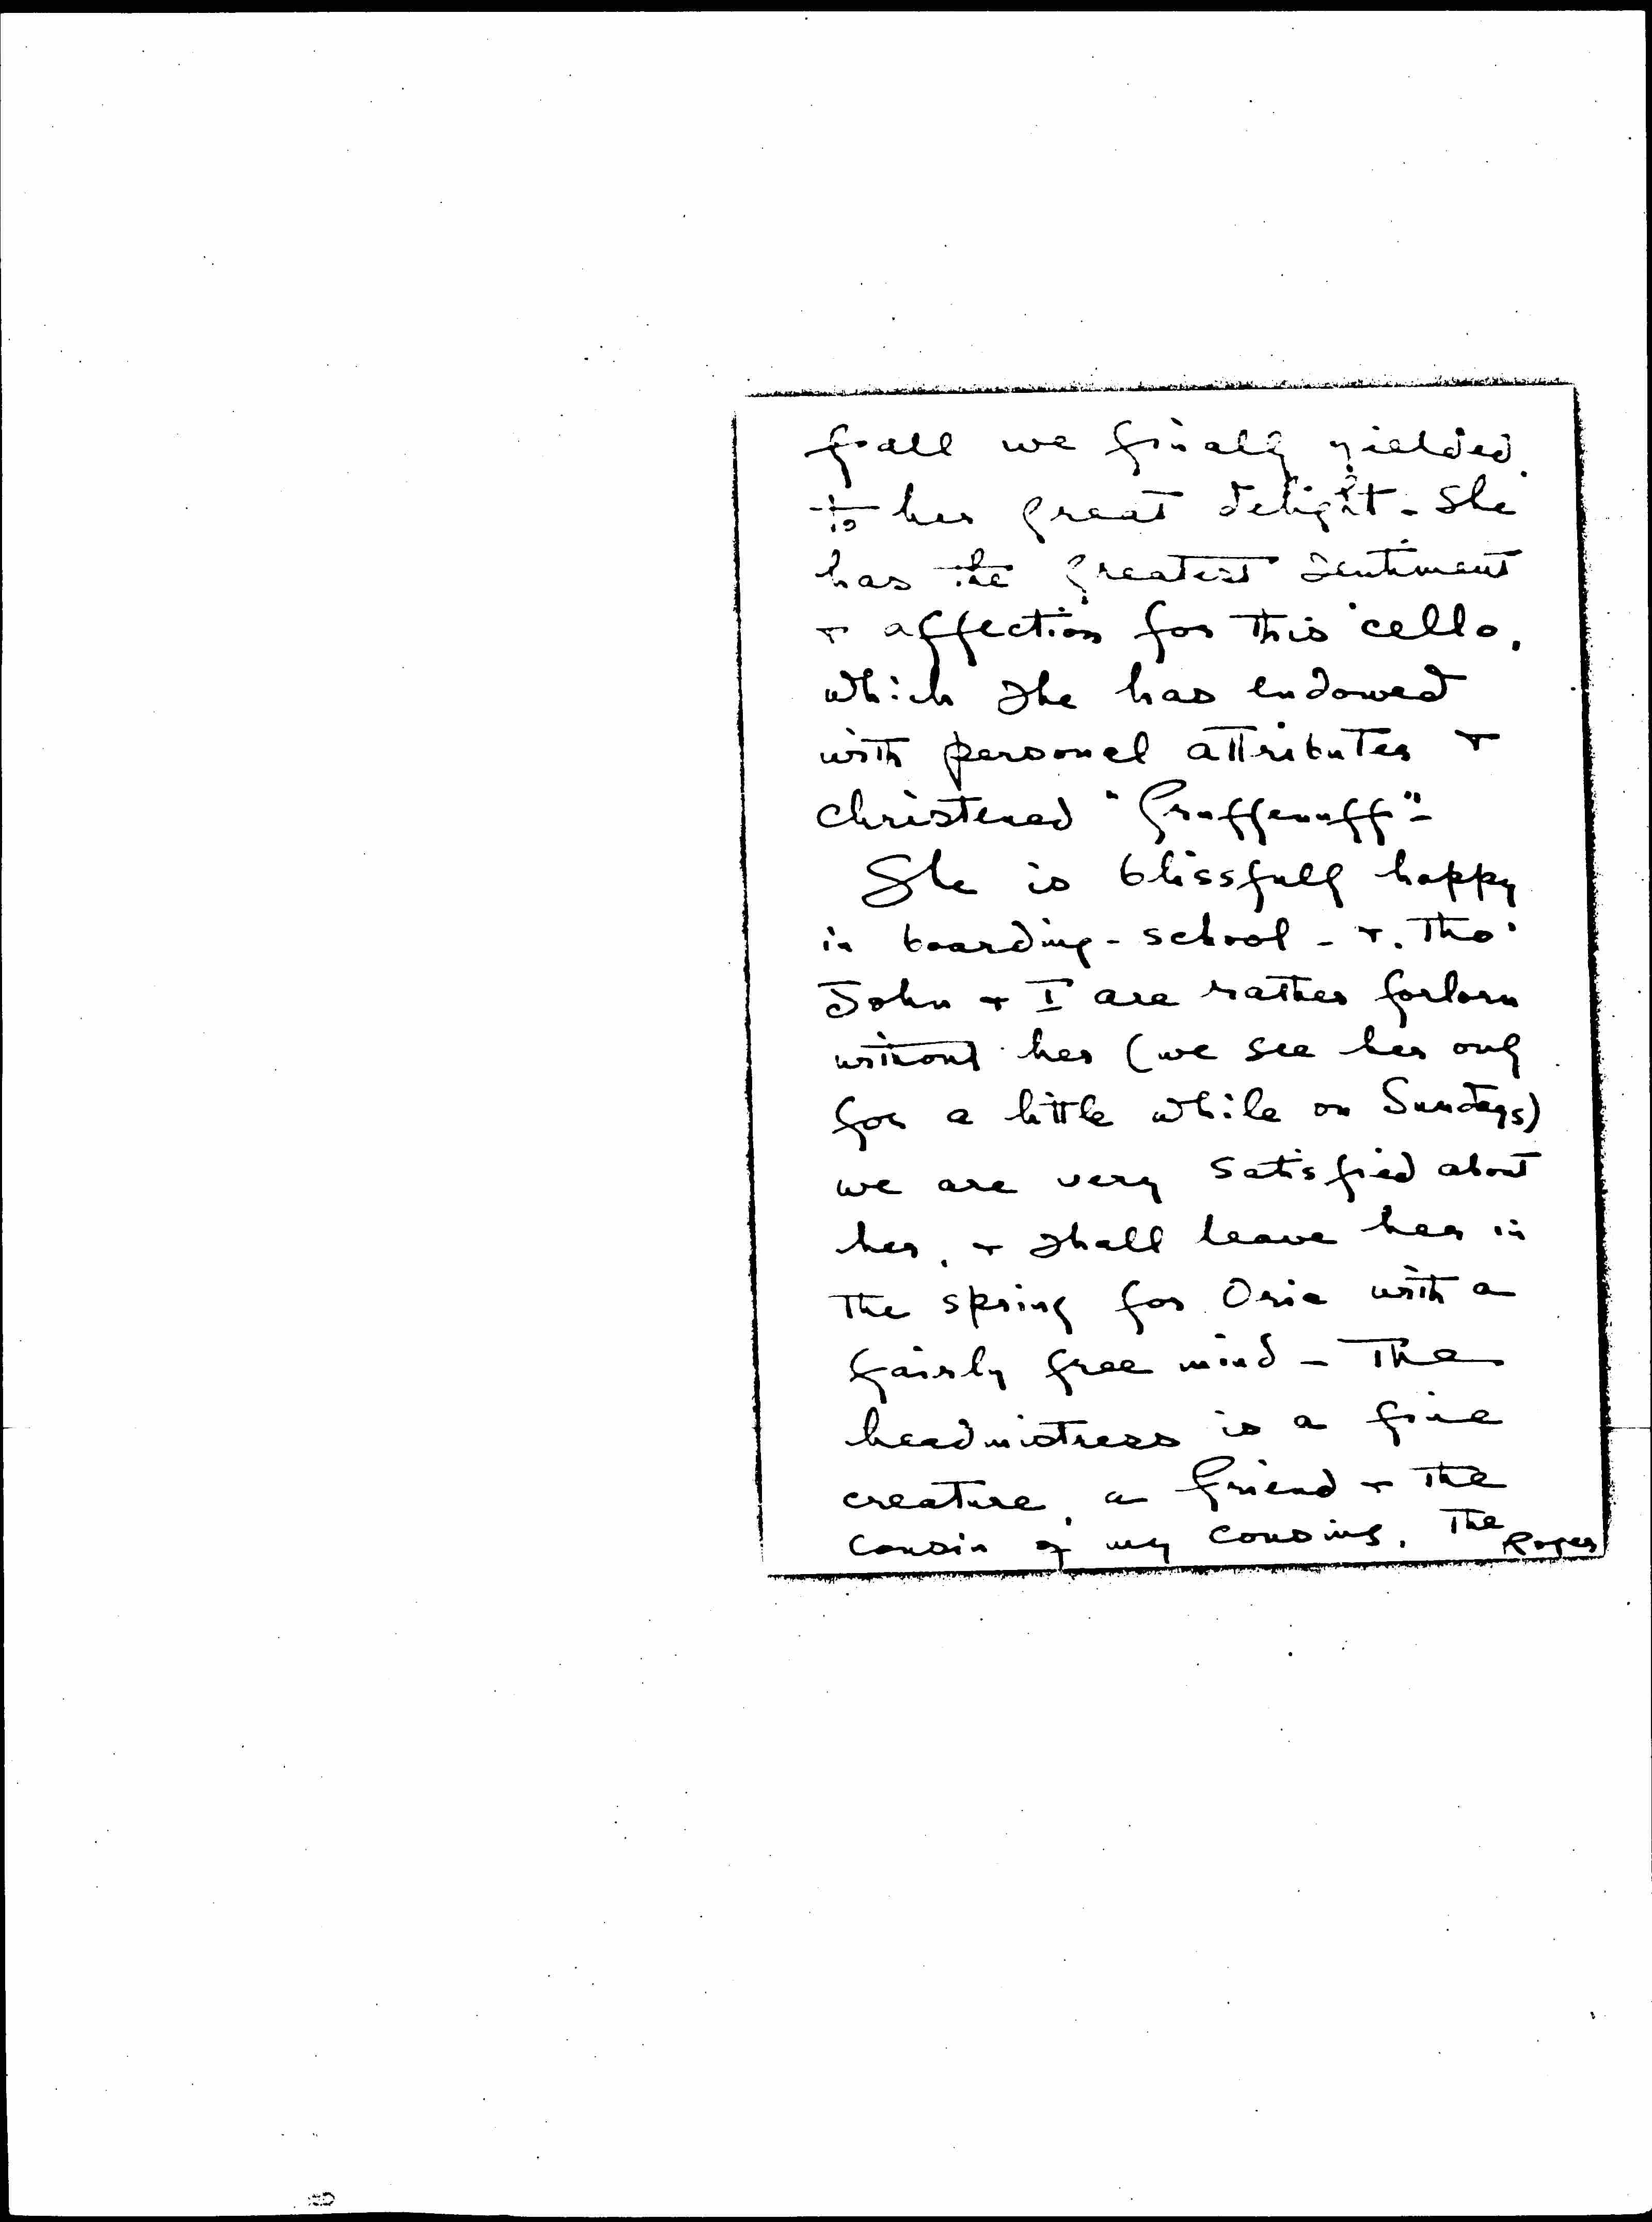 fall we finally yielded,
to her great delight - She
has the greatest sentiment
+ affection for this 'cello,
which she has endowed
with personal attributes +
christened "Gruffenuff" -
She is blissfully happy
in boarding-school - +, tho'
John + I are rather forlorn
without her (we see her only
for a little while on Sundays)
we are very satisfied about
her, + shall leave her in
the spring for Orie with a
fairly free mind - The
headmistress is a fine
creature, a friend + the
cousin of my cousins, The
Ropes